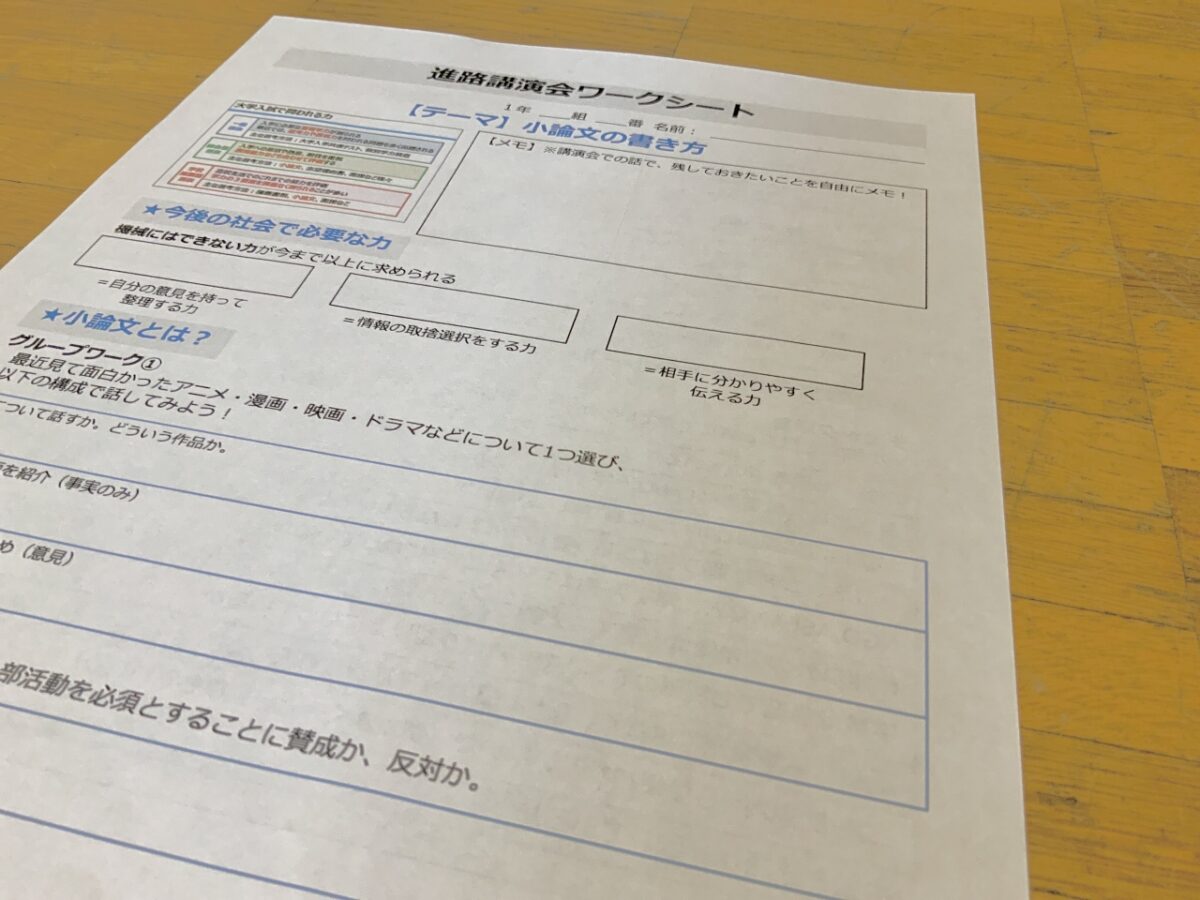 進路講演会ワークシート
1年 ＿＿組 ＿＿番 名前：
【テーマ】小論文の書き方
大学入試で問われる力
【メモ】※講演会での話で、残しておきたいことを自由にメモ！
★今後の社会で必要な力
機械にはできない力が今まで以上に求められる
＝自分の意見を持って
整理する力
＝情報の取捨選択をする力
＝相手に分かりやすく
伝える力
★小論文とは？
グループワーク①
最近見て面白かったアニメ・漫画・映画・ドラマなどについて1つ選び、
以下の構成で話してみよう！
ついて話すか。どういう作品か。
を紹介（事実のみ）
め（意見）
部活動を必須とすることに賛成か、反対か。